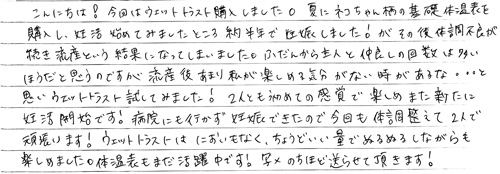 こんにちは！今回はウェットトラスト購入しました。夏にネコちゃん柄の基礎体温表を
購入し、妊活始めてみましたところ約半年で妊娠しました！がその後体調不良が
続き流産という結果になってしまいました。ふだんから主人と仲良しの回数は多い
ほうだと思うのですが流産後あまり私が楽しめる気分がない時があるな・・・と
思いウェットトラスト試してみました！2人とも初めての感覚で楽しめまた新たに
妊活開始です！病院にも行かず妊娠できたので今回も体調整えて2人で
頑張ります！ウェットトラストはにおいもなく、ちょうどいい量でぬるぬるしながらも
楽しめました。体温表もまだ活躍中です！写メのちほど送らせて頂きます！